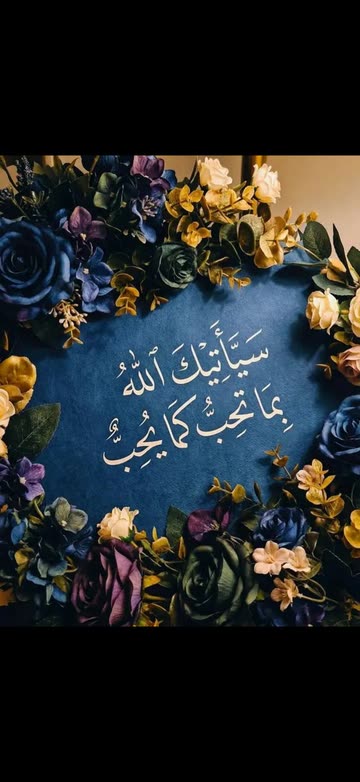 سَيَّأَتِيْكَ ٱللّٰهُ
بِمَا تَحِبُّ كَمَا يُحِبُّ